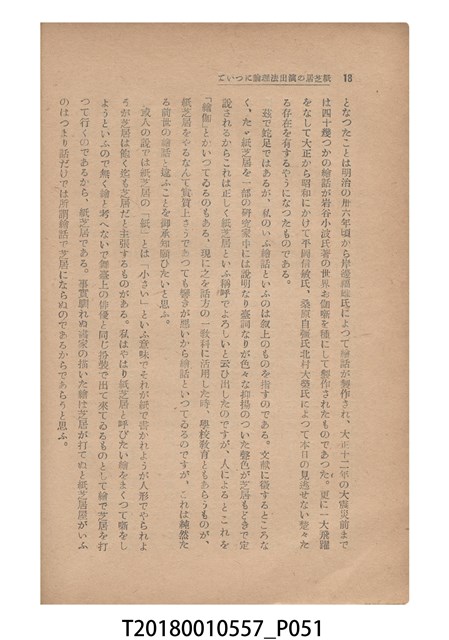 18 紙芝居の演出法理論について
となつたことは明治の卅六年頃から岸邊福雄氏によつて繪話が製作され、大正十二年の大震災前まで
は四十幾つかの繪話が岩谷小波氏著の世界お伽噺を種にして製作されたものであつた。更に一大飛躍
をなして大正から昭和にかけて平岡信敏氏、桑原自彊氏北村大榮氏によつて本日の見逃せない堂々た
る存在を有するやうになつたものである。
茲で蛇足ではあるが、私のいふ繪話といふのは叙上のものを指すのである。文献に據するところな
く、たゞ紙芝居を一部の研究家中には説明なり臺詞なりが色々な抑揚のついた聲色が芝居もどきで定
説されるからこれは正しく紙芝居といふ稱呼でよろしいと云ひ出したのですが、人によるとこれを
「繪伽」とかいつてゐるのもある、現に之を話方の一教科に活用した時、學校教育ともあらうものが、
紙芝居をやるなんて實質上さうであつても響きが悪いから繪話といつてゐるのですが、これは純然た
る前世の繪話と違ふことを御承知願ひたいと思ふ。
或人の説では紙芝居の「紙」とは「小さい」といふ意味でそれが紙で書かれようが人形でやられよ
うが芝居は飽く迄も芝居だと主張するものがある。私はやはり紙芝居と呼びたい繪をまくつて噺をし
ようといふので無く繪と考へないで舞臺上の俳優と同じ扮裝で出て來てゐるものとして繪で芝居を打
つて行くのであるから、紙芝居である。事實馴れぬ畵家の描いた繪は芝居が打てぬと紙芝居屋がいふ
のはつまり話だけでは所謂繪話で芝居にならぬのであるからであらうと思ふ。
T20180010557_P051